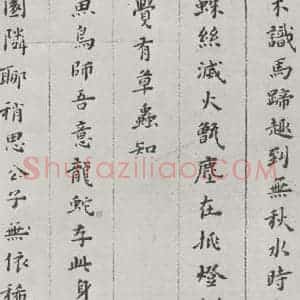 不識馬蹄趣到無秋水時
蛛絲滅火甑塵在挑燈
覺有草蟲知
魚鳥師吾意龍蛇存此身
園隣聊稍思公子無依稀
Shufaziliao.COM